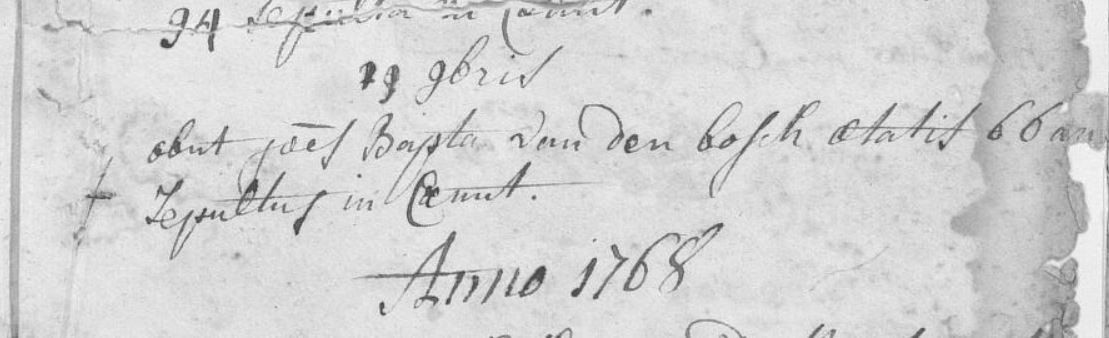 94 sepulta in Cœmit.
29 9bris
obiit joēs Bapta van den bosch ætatis 66 an
Sepultus in Cœmit.
Anno 1768